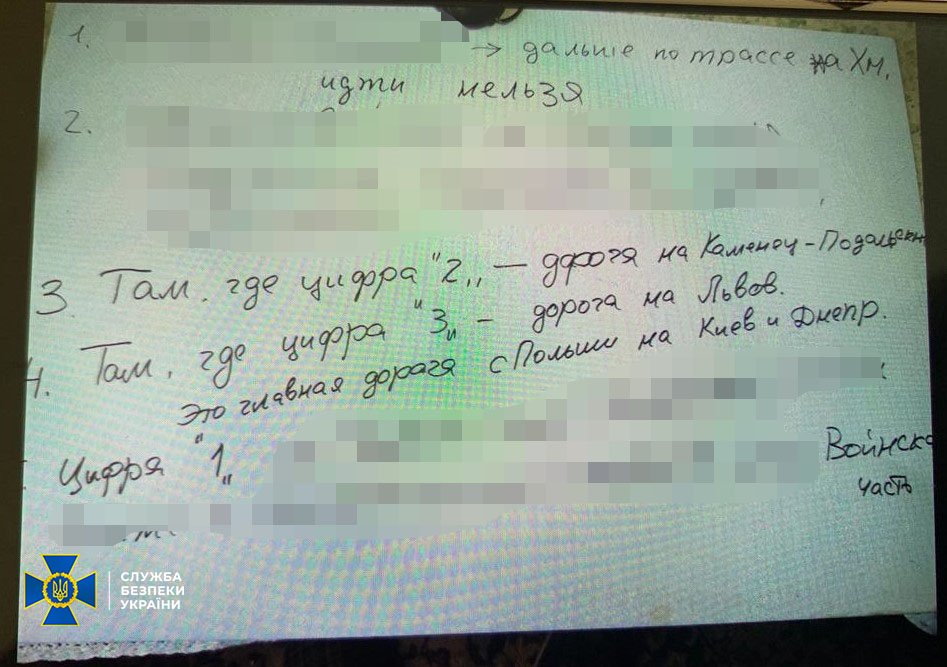 1. → дальше по трассе на Хм.
идти нельзя
2.
3. Там, где цифра "2„ — дорога на Каменец-Подольск
4. Там, где цифра "3„ - дорога на Львов.
Это главная дорога с Польши на Киев и Днепр.
Цифра "1„ Войнска
часть
СЛУЖБА
БЕЗПЕКИ
УКРАЇНИ